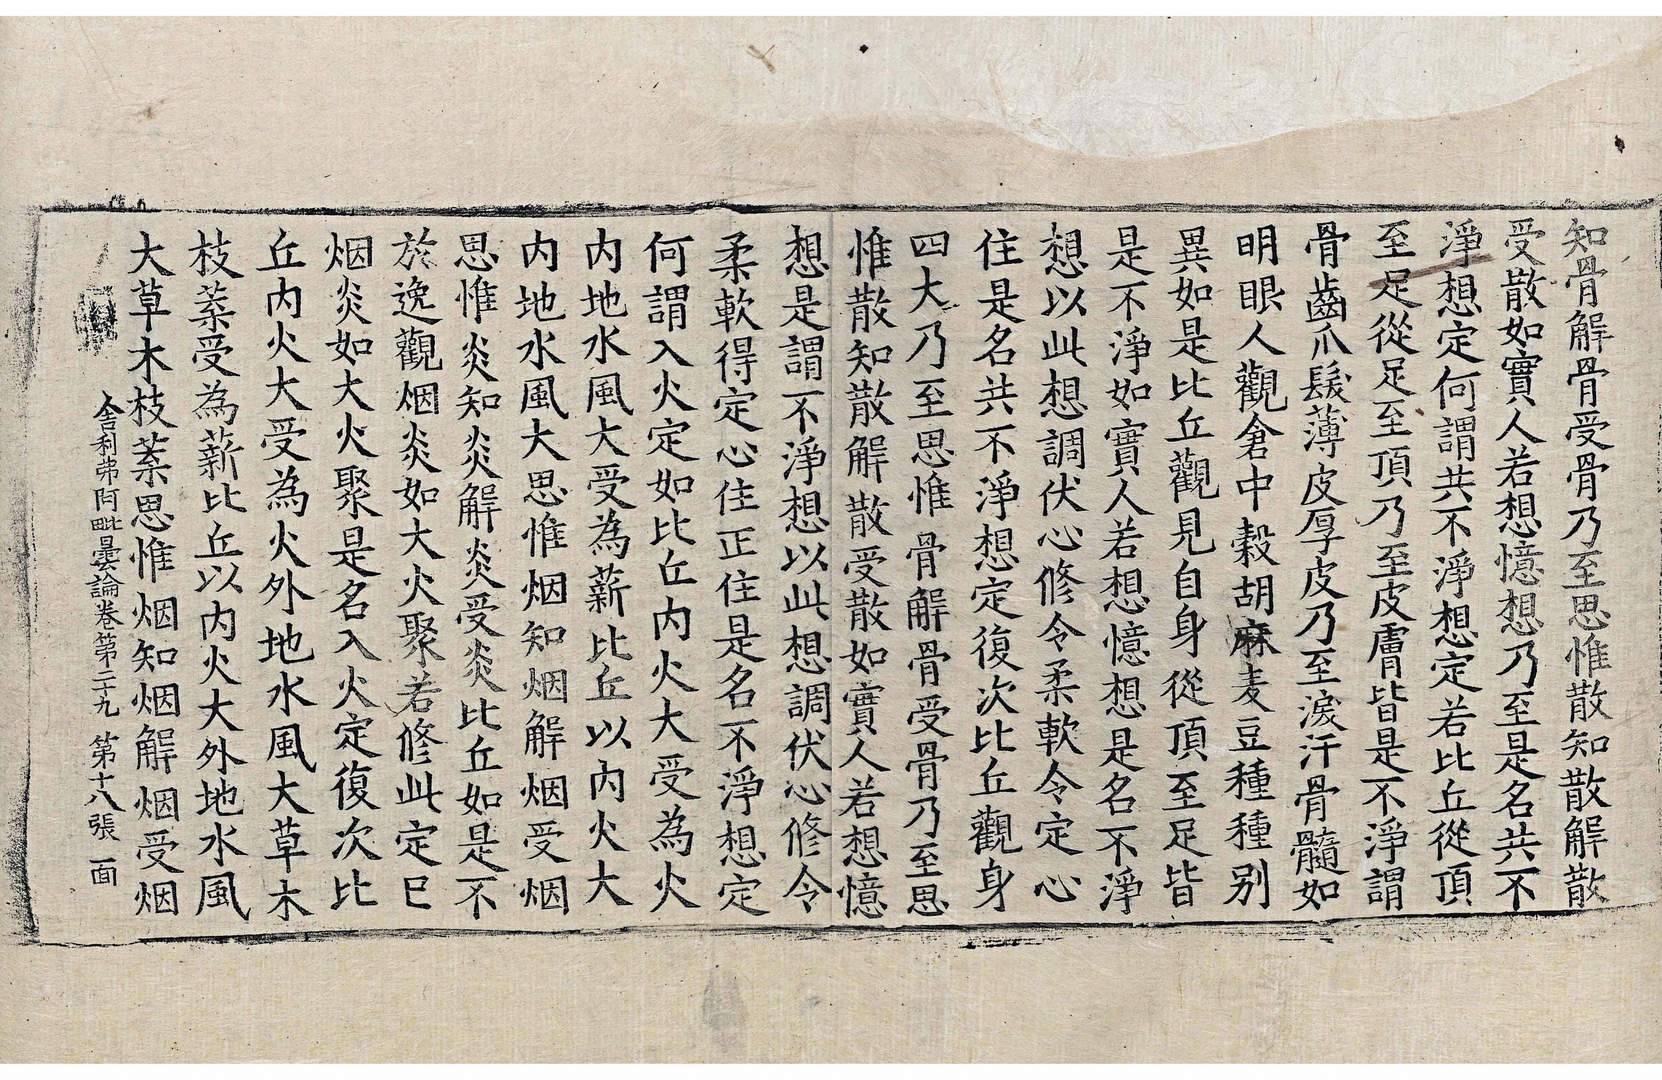 知骨解骨受骨乃至思惟散知散解散
受散如實人若想憶想乃至是名共不
淨想定何謂共不淨想定若比丘從頂
至足從足至頂乃至皮膚皆是不淨謂
骨齒爪髮薄皮厚皮乃至淚汗骨髓如
明眼人觀倉中穀胡麻麦豆種種别
異如是比丘觀見自身從頂至足皆
是不淨如實人若想憶想是名不淨
想以此想調伏心修令柔軟令定心
住是名共不淨想定復次比丘觀身
四大乃至思惟骨解骨受骨乃至思
惟散知散解散受散如實人若想憶
想是謂不淨想以此想調伏心修令
柔軟得定心住正住是名不淨想定
何謂入火定如比丘内火大受為火
内地水風大受為薪比丘以内火大
内地水風大思惟烟知烟解烟受烟
思惟炎知炎解炎受炎比丘如是不
放逸觀烟炎如大火聚若修此定已
烟炎如大火聚是名入火定復次比
丘内火大受為火外地水風大草木
枝葉受為薪比丘以内火大外地水風
大草木枝葉思惟烟知烟解烟受烟
舍利弗阿毗曇論卷第二十九 第十八張 面